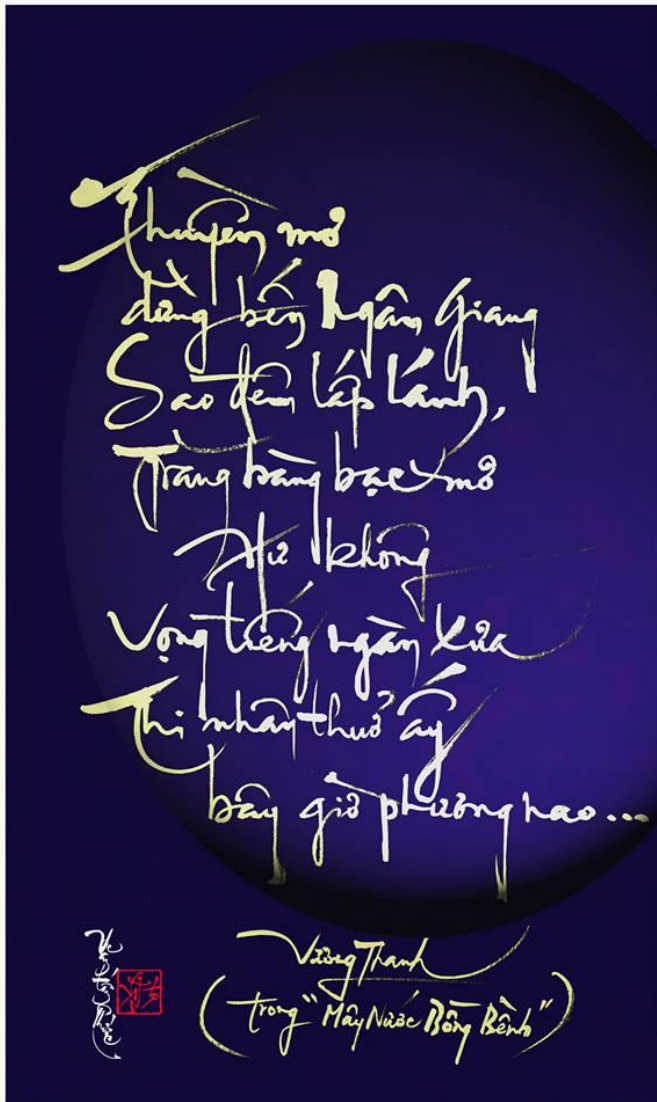 Thuyền mơ
dừng bến Ngân Giang
Sao đêm lấp lánh,
Trăng hàng bạc mơ
Hư không
Vọng tiếng ngàn xưa
Thi nhân thuở ấy
bây giờ phương nao...
Vương Thanh
(trong "Mây Nước Bồng Bềnh")